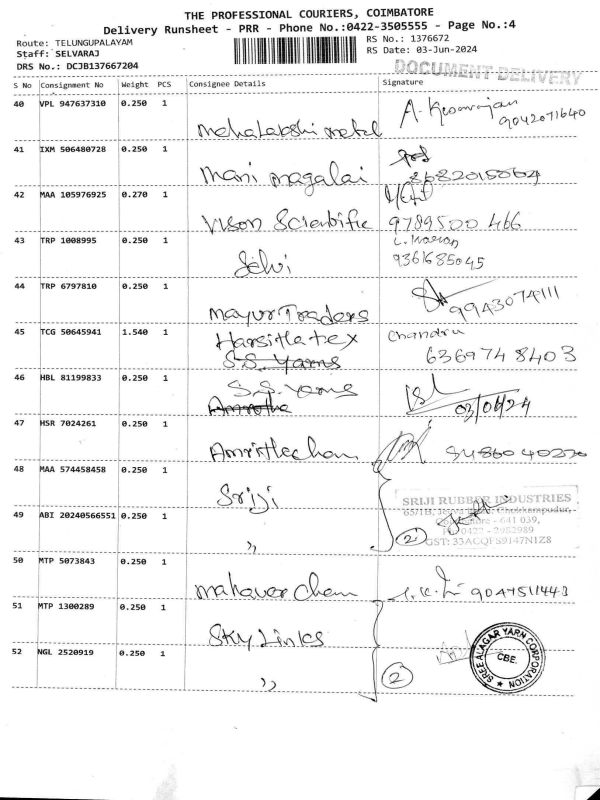 THE PROFESSIONAL COURIERS, COIMBATORE
Delivery Runsheet - PRR - Phone No.:0422-3505555 - Page No.:4
Route: TELUNGUPALAYAM
Staff: SELVARAJ
DRS No.: DCJB137667204
RS No.: 1376672
RS Date: 03-Jun-2024
DOCUMENT DELIVERY
S No Consignment No Weight PCS Consignee Details Signature
40 VPL 947637310 0.250 1
mahalakshi metal
9042071640
41 IXM 506480728 0.250 1
mani magalai
42 MAA 105976925 0.270 1
Vison Scientific 9789500 466
43 TRP 1008995 0.250 1
Selvi 9361685045
44 TRP 6797810 0.250 1
mayur Traders 9943074111
45 TCG 50645941 1.540 1
Harsitla tex Chandru
S.S. Yarns 6369748403
46 HBL 81199833 0.250 1
S.S. Yarns
03/06/24
47 HSR 7024261 0.250 1
48 MAA 574458458 0.250 1
Sriji
SRIJI RUBBER INDUSTRIES
- 641 039,
GST: 33AGQFS9147N1Z8
49 ABI 20240566551 0.250 1
" 2
50 MTP 5073843 0.250 1
9047511443
51 MTP 1300289 0.250 1
Sky Links
52 NGL 2520919 0.250 1
" 2
SREE ALAGAR YARN CORPORATION
CBE.